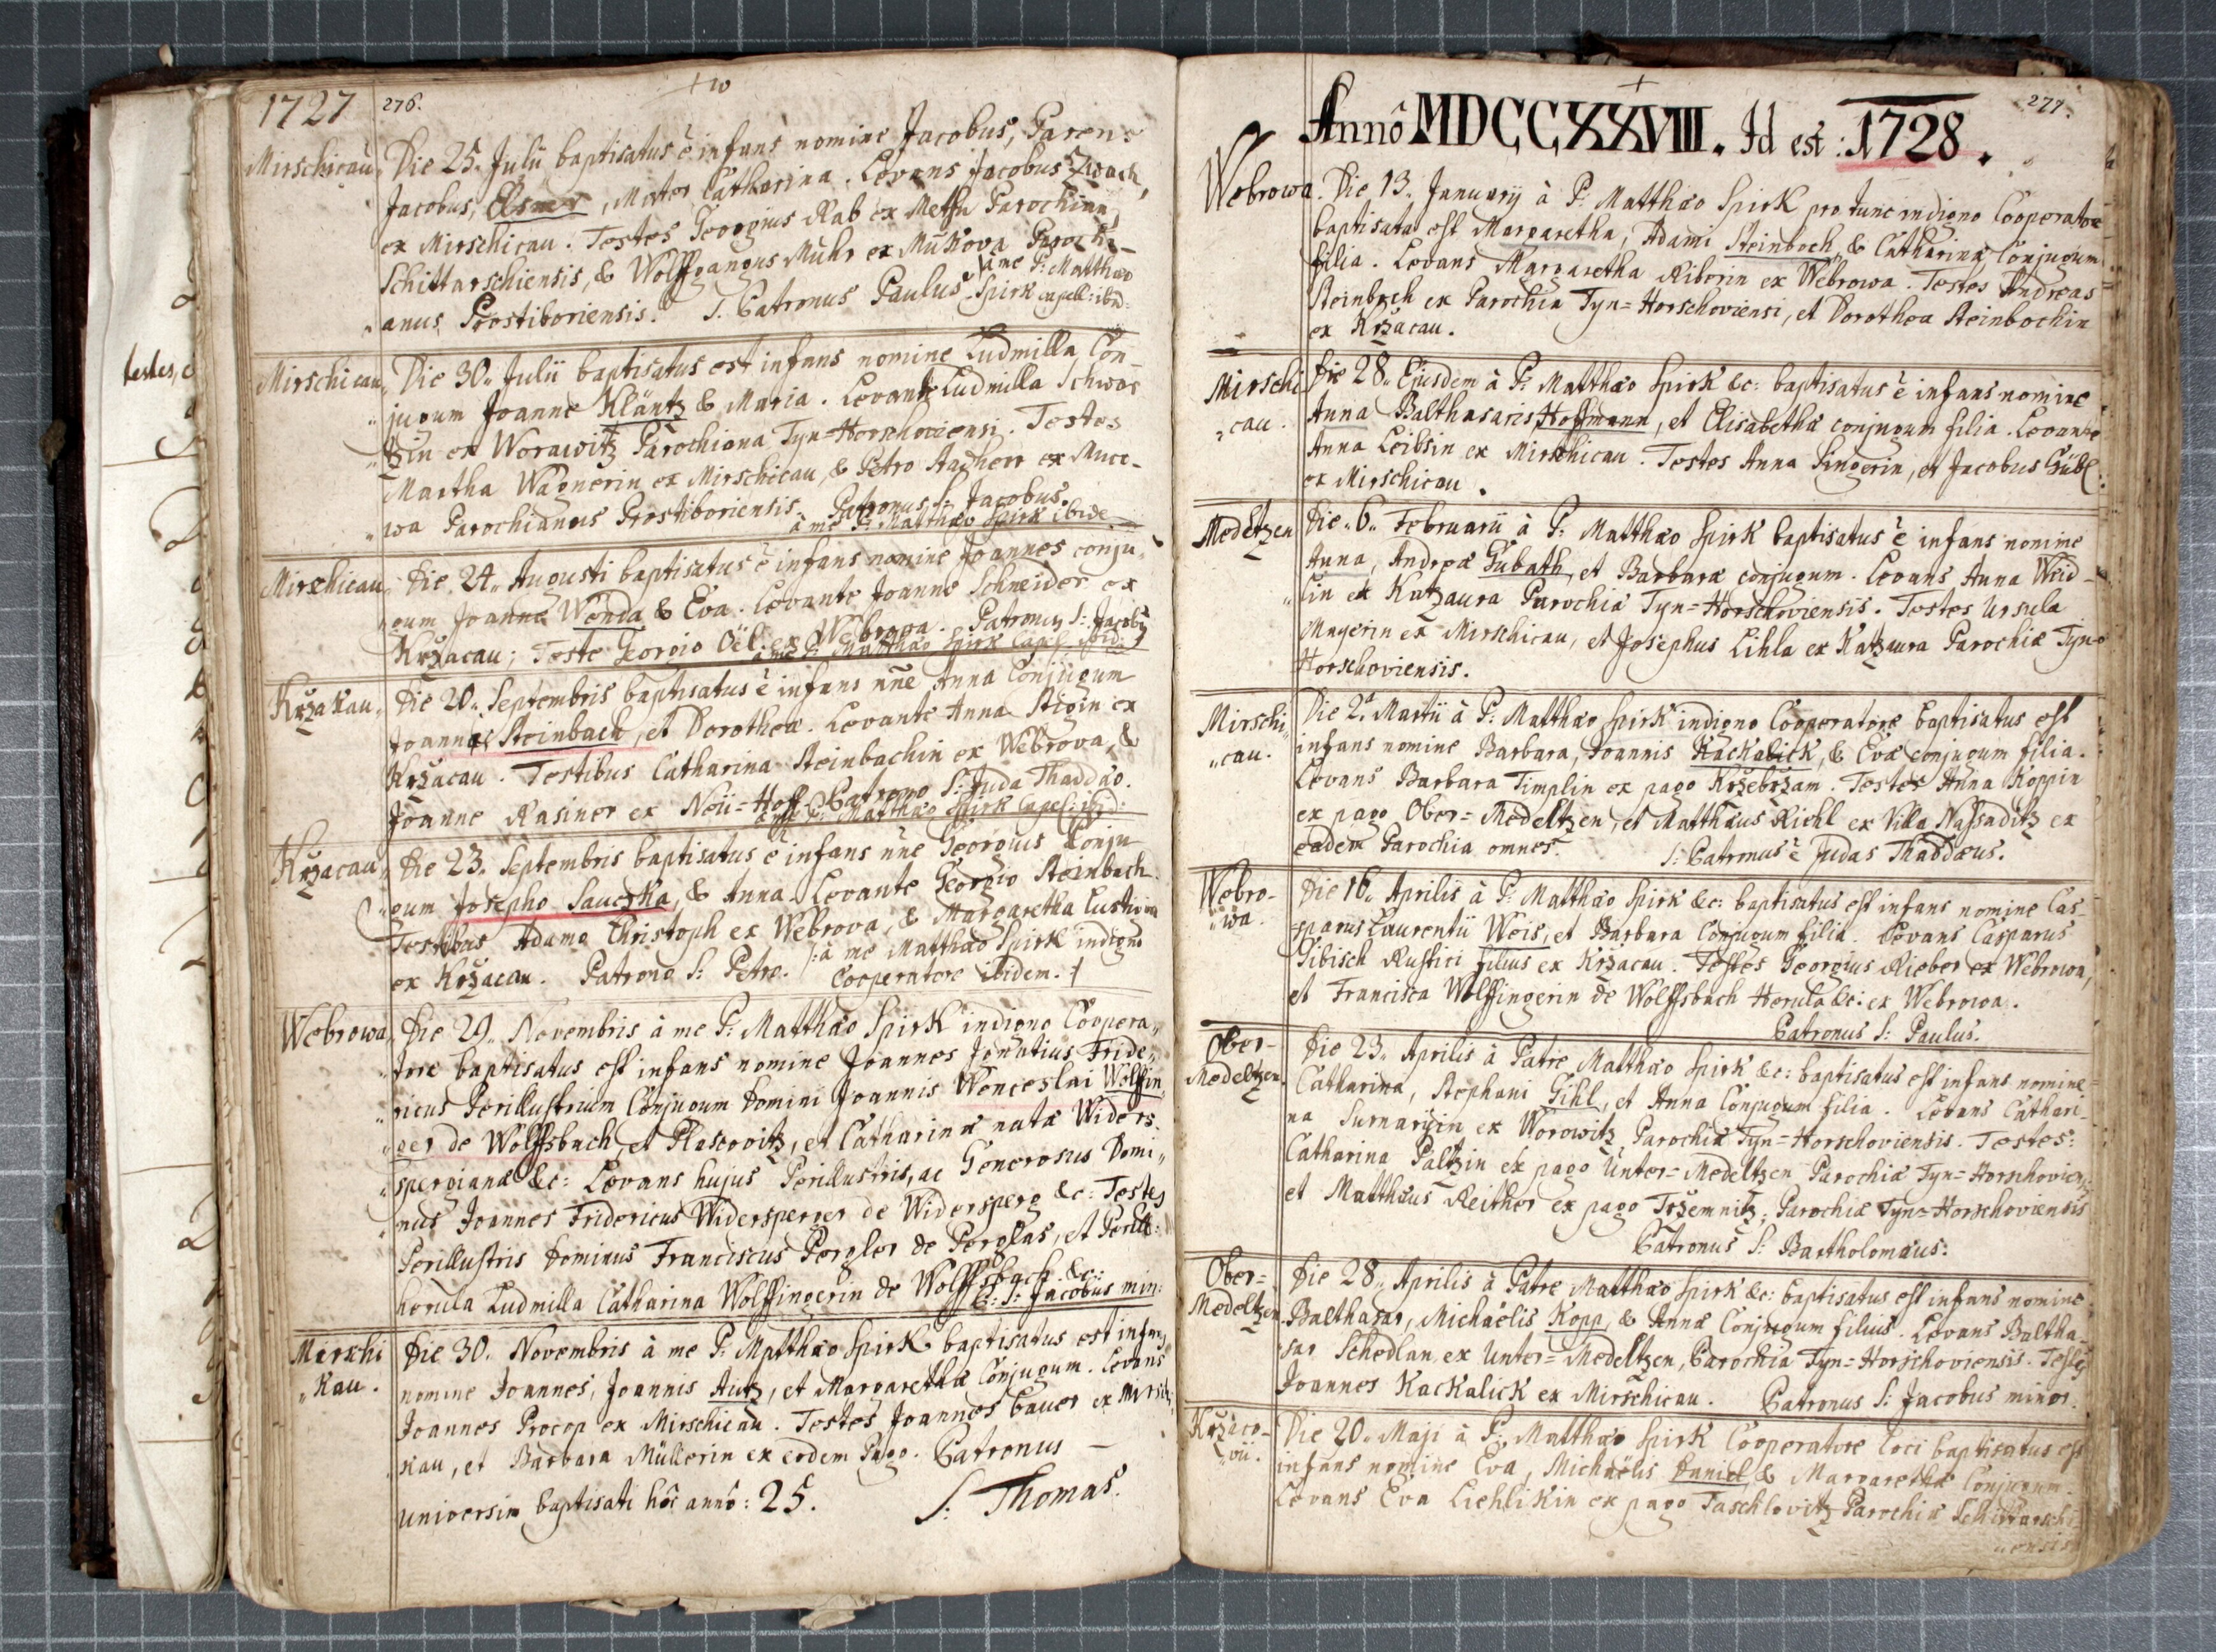 1727
276.
Mirschicau. Die 25. Julii baptisatus ē infans nomine Jacobus, Paren-
Jacobus, , Mater Catharina. Levans Jacobus
ex Mirschicau. Testes Georgius Rab ex Parochiana
Schittarschiensis, & Wolffgangus Muhr ex Mukova Parochi-
anus Prostiboriensis. S. Patronus Paulus à me P. Matthæo
Spirk capell: ibid:
Mirschicau. Die 30. Julii baptisatus est infans nomine Ludmilla, Con-
jugum Joanne Kläntz & Maria. Levante Ludmilla Schwar
tzin ex Worawitz Parochiana Tyn-Horschoviensi. Testes
Martha Wagnerin ex Mirschicau, & Petro ex Muce-
wa Parochianus Prostiboriensis. Patronus S. Jacobus.
à me P. Matthæo Spirk ibide.
Mirschicau. Die 24. Augusti baptisatus ē infans nomine Joannes conju-
gum Joanne Wenda & Eva. Levante Joanne Schneider ex
Kržacau; Teste Georgio Öel ex Webrowa. Patronus S. Jacobi
à me P. Matthæo Spirk Capel. ibid:
Kržakau. Die 20. Septembris baptisatus ē infans nñe Anna Conjugum
Joannis Steinbach, et Dorothea. Levante Anna Steigin ex
Kržacau. Testibus Catharina Steinbachin ex Webrova, &
Joanne Rasiner ex Neü=Hoff. Patrono S: Juda Thaddæo.
à me P. Matthæo Spirk Capel: ibid:
Kržacau. Die 23. Septembris baptisatus ē infans nñe Georgius Conju
gum Josepho Sauczka, & Anna. Levante Georgio Steinbach
Testibus Adamo Christoph ex Webrova, & Margaretha
ex Kržacau. Patrono S: Petro. /: à me Matthæo Spirk indigno
Cooperatore ibidem. :/
Webrowa. Die 29. Novembris à me P: Matthæo Spirk indigno Coopera-
tore baptisatus est infans nomine Joannes Ignatius Fride-
ricus Perillustrium Conjugum Domini Joannis Wenceslai Wolffin
ger de Wolffsbach, et Plascovitz, et Catharinæ natæ Widers-
pergianæ &c: Levans hujus Perillustris, ac Generosus Domi-
nus Joannes Fridericus Widersperger de Widersperg &c: Testes
Perillustris Dominus Franciscus Pergler de Perglas, et Perill:
herula Ludmilla Catharina Wolffingerin de Wolffsbach &c:
P: S: Jacobus min:
Mirschi
kau. Die 30. Novembris à me P: Matthæo Spirk baptisatus est infans
nomine Joannes, Joannis Autz, et Margarethæ Conjugum. Levans
Joannes Procop ex Mirschicau. Testes Joannes Bauer ex Mirschi-
kau, et Barbara Müllerin ex eodem Pago. Patronus
Universim baptisati hôc annô: 25. S: Thomas.
277.
Annô MDCCXXVIII. Id est: 1728.
Webrowa. Die 13. Januarij à P: Matthæo Spirk pro tunc indigno Cooperatore
baptisata est Margaretha, Adami Steinbach, & Catharinæ Conjugum
filia. Levans Margaretha Riberin ex Webrowa. Testes Andreas
Steinbach ex Parochia Tyn=Horschoviensi, et Dorothea Steinbachin
ex Kržacau.
Mirschi
cau. Die 28. Ejusdem à P: Matthæo Spirk &c: baptisatus ē infans nomine
Anna Balthasaris Hoffmann, et Elisabethæ conjugum filia. Levante
Anna Leibsin ex Mirschicau. Testes Anna Singerin, et Jacobus Gübl
ex Mirschicau.
Medeltzen Die 6. Februarii à P: Matthæo Spirk baptisatus ē infans nomine
Anna, Andreæ Gubath, et Barbaræ conjugum. Levans Anna Weid-
lin ex Katzaura Parochiæ Tyn=Horschoviensis. Testes Ursula
Mayerin ex Mirschicau, et Josephus Lihla ex Katzaura Parochiæ Tyn=
Horschoviensis.
Mirschi
cau. Die 2. Martii à P: Matthæo Spirk indigno Cooperatore baptisatus est
infans nomine Barbara, Joannis Kackalick, & Evæ conjugum filia.
Levans Barbara Timplin ex pago Kržebržam. Testes Anna Koppin
ex pago Ober=Medeltzen, et Matthæus Riehl ex Villa Nassaditz ex
eadem Parochia omnes. S: Patronus ē Judas Thaddæus.
Webro-
wa. Die 16. Aprilis à P: Matthæo Spirk &c: baptisatus est infans nomine Cas-
parus Laurentii Weis, et Barbara Conjugum filia. Levans Casparus
Gibisch Rustici filius ex Kržacau. Testes Georgius Rieber ex Webrowa,
et Francisca Wolffingerin de Wolffsbach Herula &c: ex Webrowa.
Patronus S: Paulus.
Ober-
Medeltzen. Die 23. Aprilis à Patre Matthæo Spirk &c: baptisatus est infans nomine
Catharina, Stephani Gihl, et Anna Conjugum filia. Levans Cathari-
na ex Worowitz Parochiæ Tyn=Horschoviensis. Testes:
Catharina Paltzin ex pago Unter=Medeltzen Parochiæ Tyn=Horschovien:
et Matthæus Reither ex pago Tržemnitz, Parochiæ Tyn=Horschoviensis
Patronus S: Bartholomæus.
Ober=
Medeltzen. Die 28. Aprilis à Patre Matthæo Spirk &c: baptisatus est infans nomine
Balthasar, Michaëlis Kopp, & Annæ Conjugum filius. Levans Baltha-
sar Schedlan ex Unter=Medeltzen, Parochia Tyn=Horschoviensis. Testes
Joannes Kackalick ex Mirschicau. Patronus S: Jacobus minor.
Kržaco-
vii. Die 20. Maji à P: Matthæo Spirk Cooperatore loci baptisatus est
infans nomine Eva, Michaëlis Daniel & Margarethæ Conjugum.
Levans Eva Liehlikin ex pago Taschlovitz Parochiæ Schittarschi-
ensis
testes,